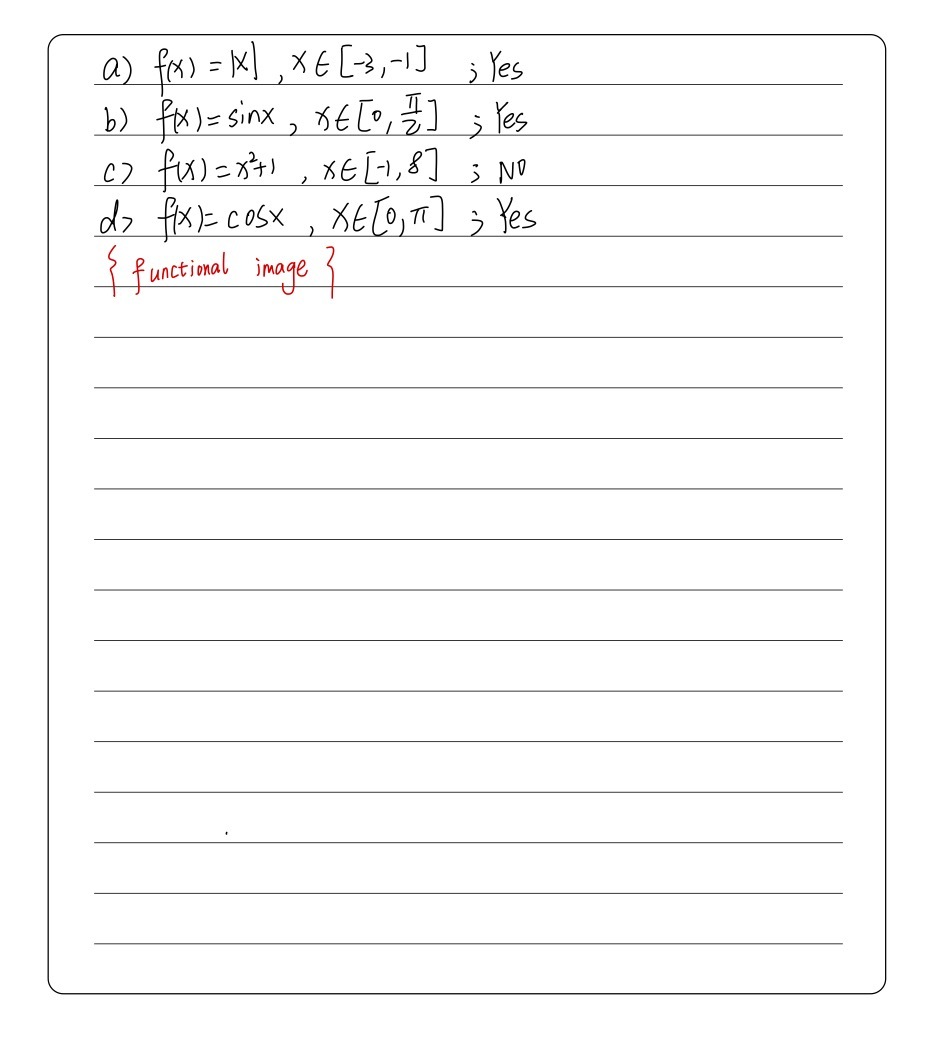 a) f(x) = |x| , x ∈ [-3, -1] ; Yes
b) f(x) = sinx , x ∈ [0, π/2] ; Yes
c) f(x) = x²+1 , x ∈ [-1, 8] ; NO
d) f(x) = cosx , x ∈ [0, π] ; Yes
{ functional image }